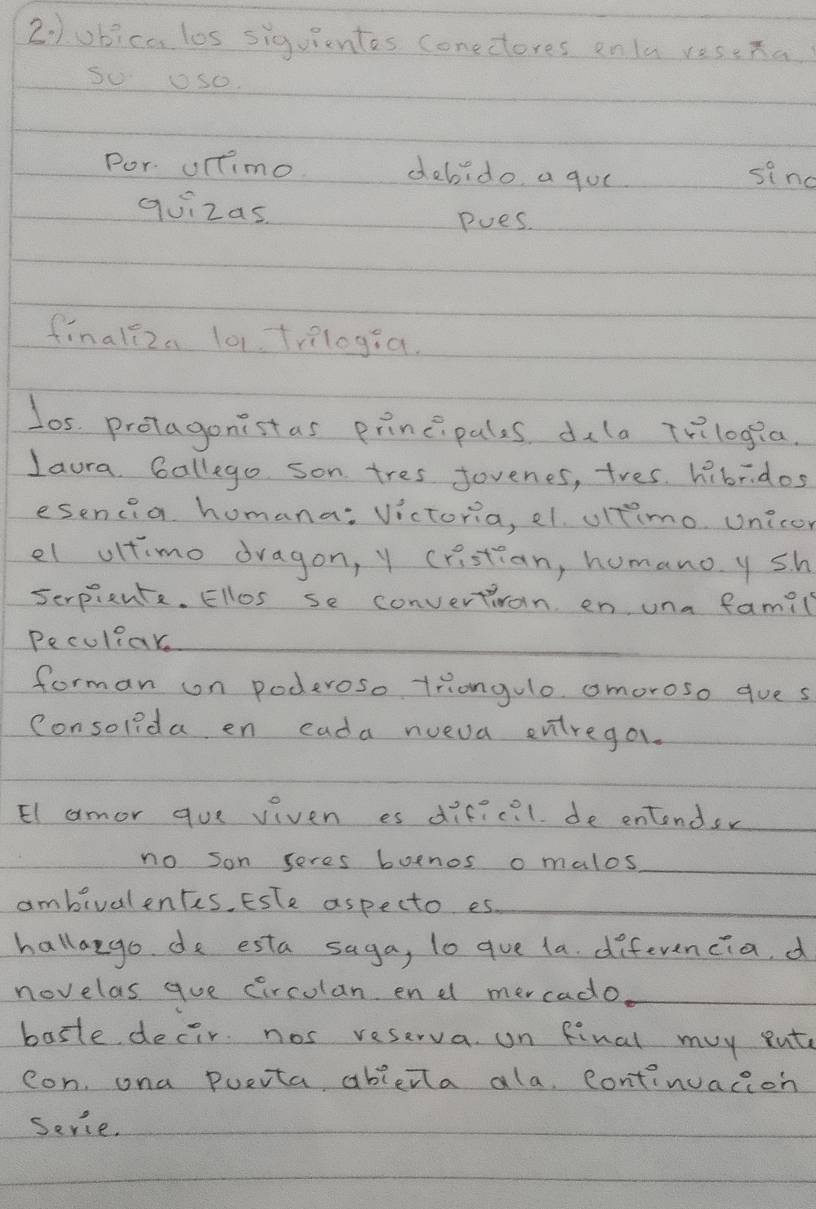 2.) ubica los siguientes conectores enla reseña
su uso.
Por ultimo debido a que sino
quizas pues.
finaliza la Trilogia.
los protagonistas principales dela Trilogia.
Laura Gallego son tres jovenes, tres hibridos
esencia humana: Victoria, el ultimo unicor
el ultimo dragon, y cristian, humano y sh
serpiente. Ellos se convertiran en una famil
Peculiar
forman un poderoso triangulo amoroso que s
Consolida en cada nueva entrega.
El amor que viven es dificil de entender
no son seres buenos o malos
ambivalentes. Este aspecto es
hallazgo de esta saga, lo que la diferencia d
novelas que circulan en el mercado.
baste decir nos reserva un final muy
con una puerta abierta ala continuacion
serie.